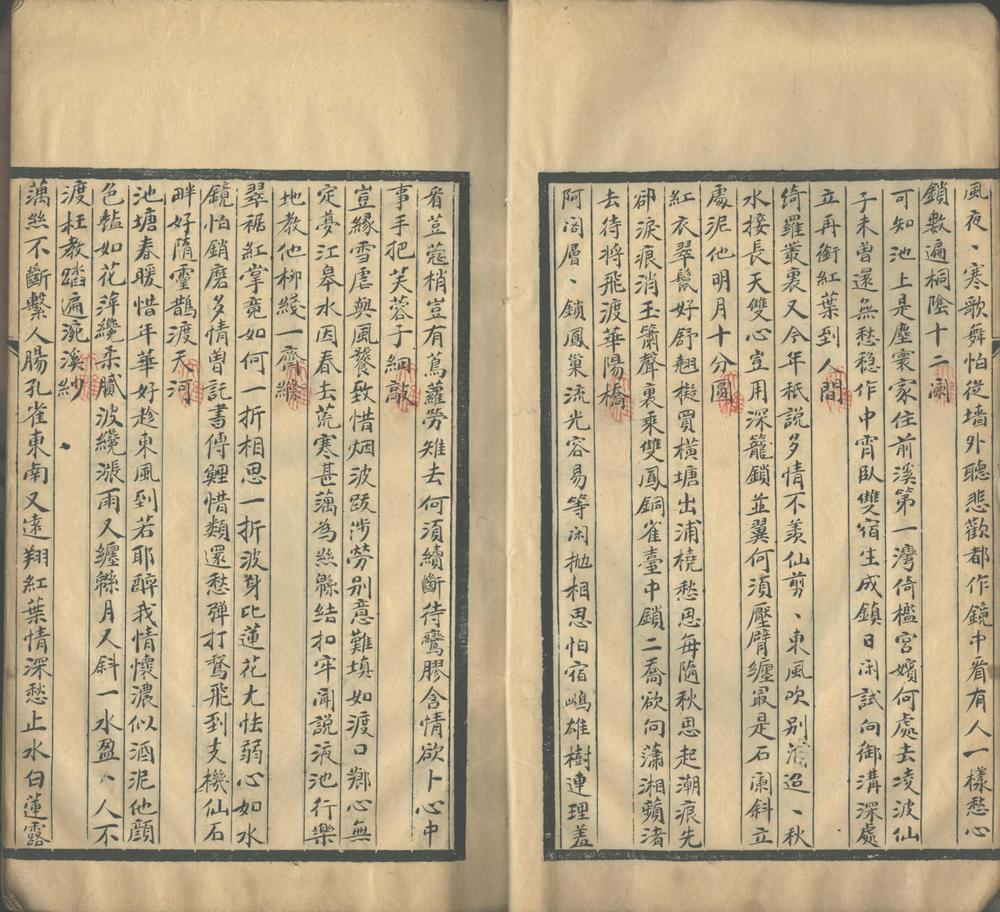 風夜、寒歌舞怕從墻外聽悲歡都作鏡中看有人一樣愁心
鎖數遍桐陰十二闌
可知池上是塵寰家住前溪第一灣倚檻宮嬪何處去凌波仙
子未曾還無愁穏作中宵臥雙宿生成鎮日闲試向御溝深處
立再銜紅葉到人間
綺羅叢裏又今年秖說多情不羡仙剪、東風吹别浦迢、秋
水接長天雙心豈用深籠鎖並翼何須壓臂纏最是石闌斜立
處泥他明月十分圓
紅衣翠鬟好舒翹擬買橫塘出浦橈愁思每隨秋思起潮痕先
郤淚痕消玉簫聲裏乘雙鳳銅雀臺中鎖二喬欲向瀟湘蘋渚
去待將飛渡華陽橋
阿阁層、鎖鳳巢流光容易等闲抛相思怕宿鵁雄樹連理羞
看荳蔻梢豈有蔦蘿勞雉去何須續斷待鸞膠含情欲卜心中
事手把芙蓉子細敲
豈緣雪虐與風饕致惜烟波跋涉勞别意難填如渡口鄉心無
定夢江皋水因春去荒寒甚藕為絲緜結扣牢闻說液池行樂
地教他柳綫一齊繰
翠裾紅掌竟如何一折相思一折波身比蓮花尤怯弱心如水
鏡怕銷磨多情曾託書傳鯉惜類還愁彈打鵞飛到支機仙石
畔好隨靈鵲渡天河
池塘春暖惜年華好趁東風到若耶醉我情懷濃似酒泥他顔
色豔如花浑纔柔膩波纔漲雨又纏緜月又斜一水盈、人不
渡枉教踏遍浣溪紗
藕絲不斷繫人腸孔雀東南又遠翔紅葉情深愁止水白蓮露